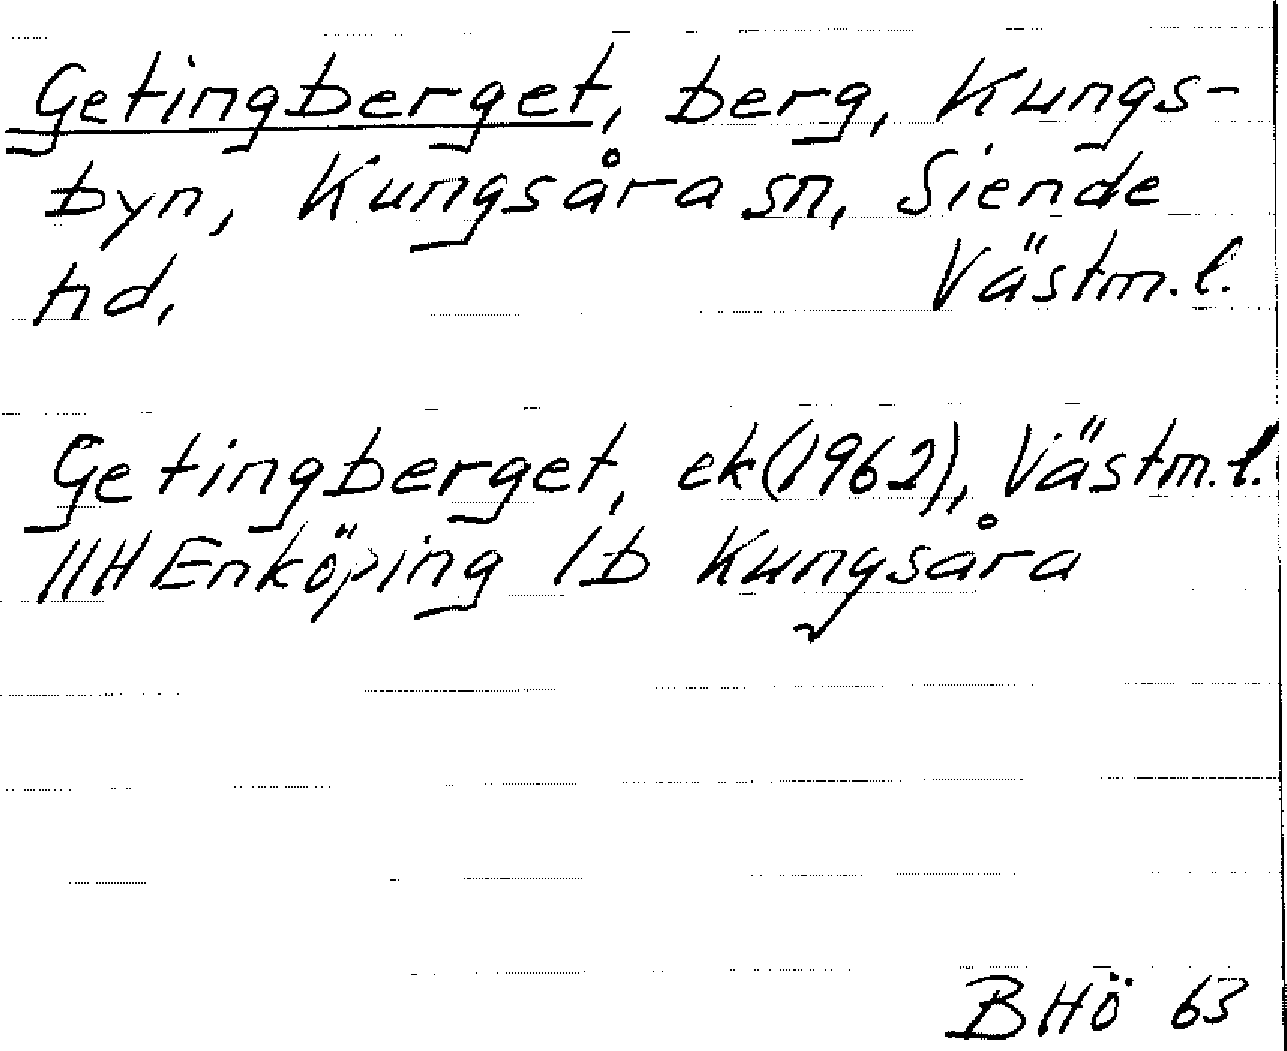 Getingberget, berg, Kungs-
byn, Kungsåra sn, Siende
hd, Västm.l.
Getingberget, ek(1962), Västm.l.
11H Enköping 1b Kungsåra
BHö 63